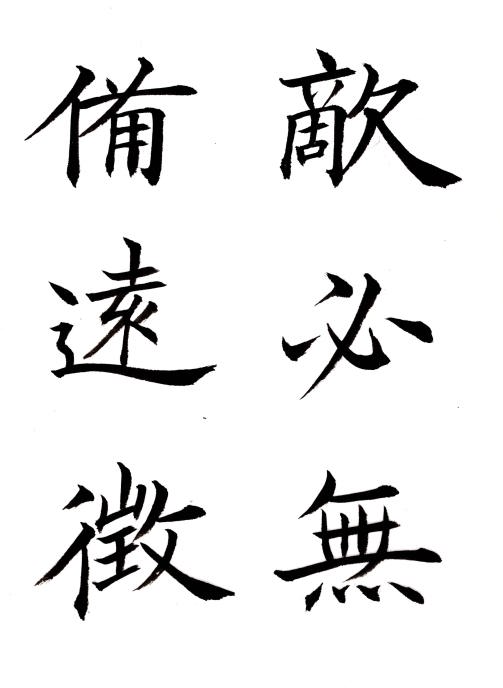 敵必無
備遠徴